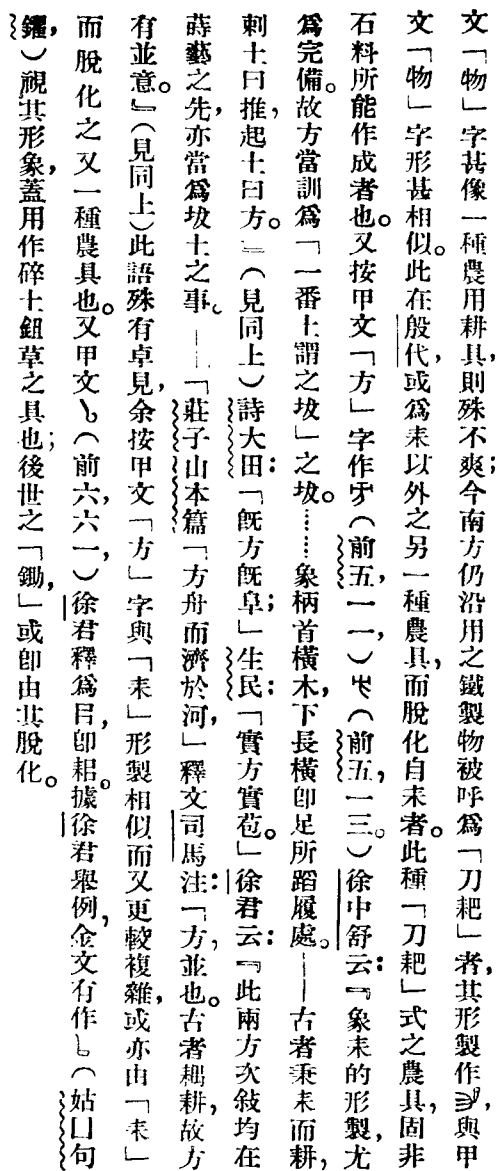 文「物」字甚像一種農用耕具，則殊不爽；今南方仍沿用之鐵製物被呼爲「刀耙」者，其形製作，與甲
文「物」字形甚相似。此在殷代，或爲耒以外之另一種農具，而脫化自耒者。此種「刀耙」式之農具，固非
石料所能作成者也。又按甲文「方」字作（前五，一一，）（前五，一三。）徐中舒云：『象耒的形製，尤
爲完備。故方當訓爲「一番土謂之坺」之坺。……象柄首橫木，下長橫卽足所蹈履處。——古者秉耒而耕，
刺土曰推，起土曰方。』（見同上）詩大田：「旣方旣皁；」生民：「實方實苞。」徐君云：『此兩方次敍均在
蒔藝之先，亦當爲坺土之事。——「莊子山本篇「方舟而濟於河，」釋文司馬注：「方，並也。古者耦耕，故方
有並意。』（見同上）此語殊有卓見，余按甲文「方」字與「耒」形製相似而又更較複雜，或亦由「耒」
而脫化之又一種農具也。又甲文（前六，六一，）徐君釋爲㠯，卽耜。據徐君舉例，金文有作（姑口句
鑃）視其形象，蓋用作碎土鉏草之具也；後世之「鋤，」或卽由其脫化。